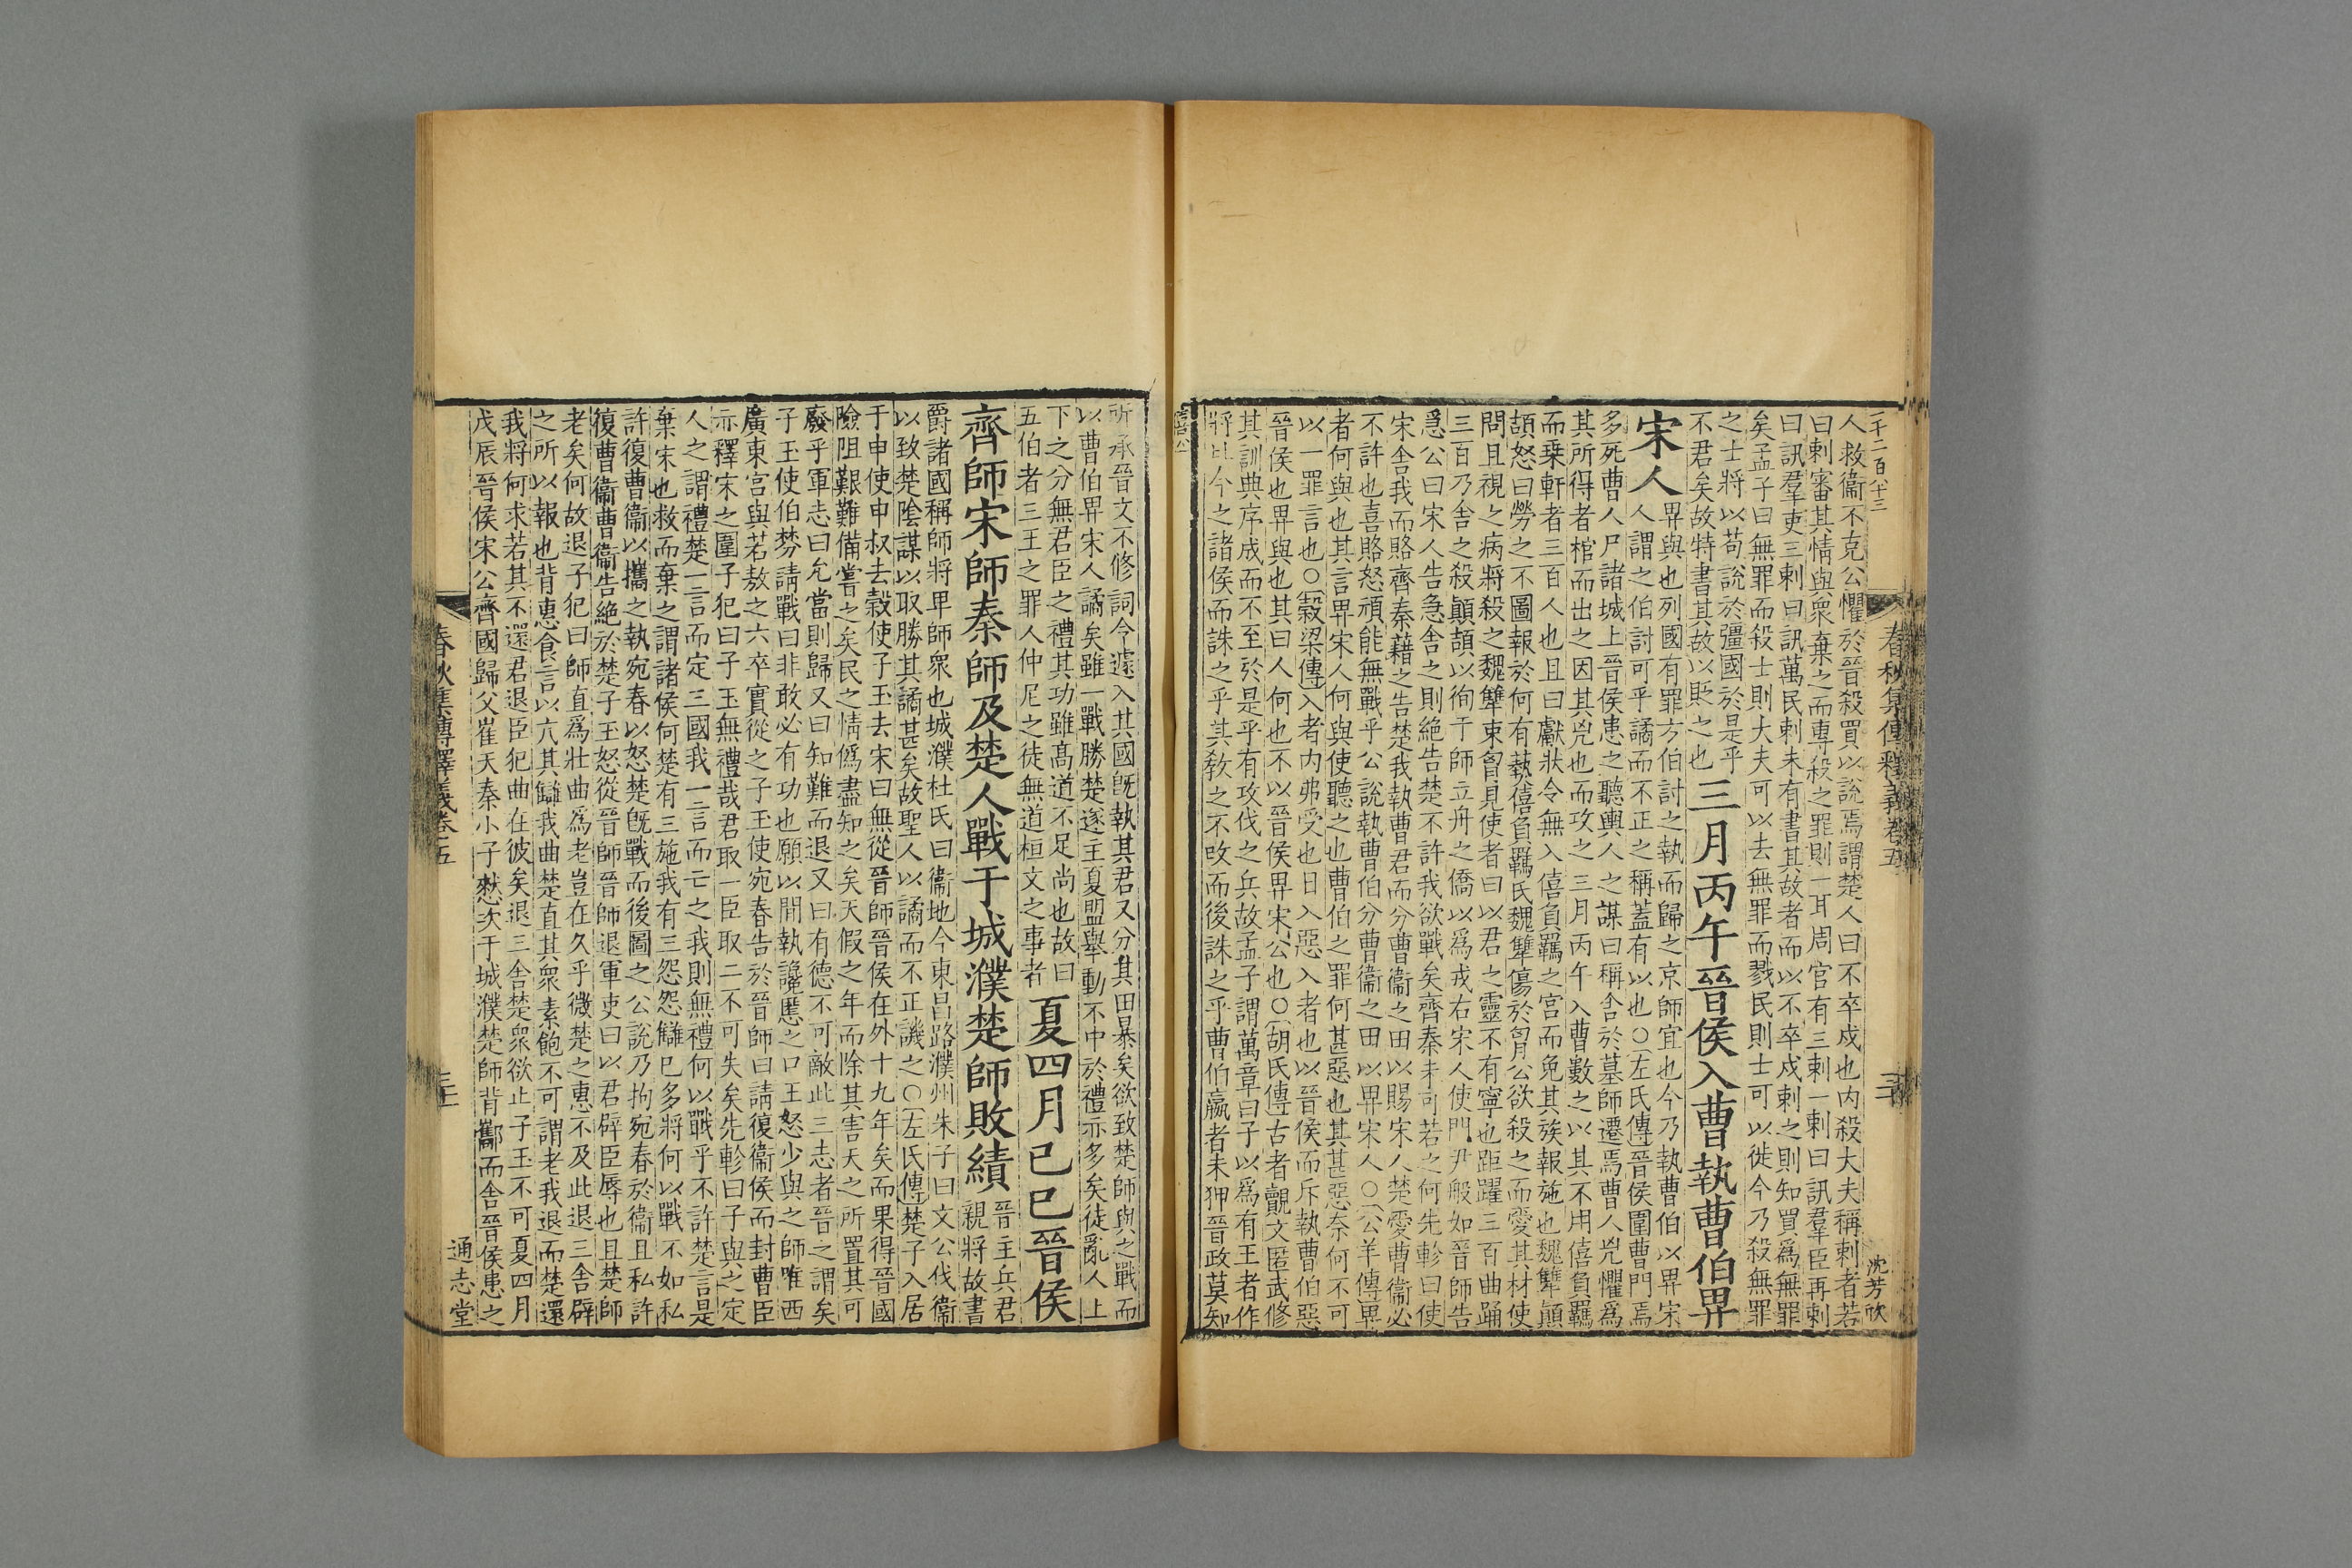 二千二百八十三
春秋集傳釋義卷五
沈芳欣
人救衞不克公懼於晉殺買以說焉謂楚人曰不卒戍也内殺大夫稱刺者若
曰刺審其情與衆棄之而專殺之罪則一耳周官有三刺一刺曰訊羣臣再刺
曰訊羣吏三刺曰訊萬民刺未有書其故者而以不卒戍刺之則知買爲無罪
矣孟子曰無罪而殺士則大夫可以去無罪而戮民則士可以徙今乃殺無罪
之士將以苟說於彊國於是乎
不君矣故特書其故以貶之也
三月丙午晉侯入曹執曹伯畀
宋人
畀與也列國有罪方伯討之執而歸之京師宜也今乃執曹伯以畀宋
人謂之伯討可乎譎而不正之稱蓋有以也○左氏傳晉侯圍曹門焉
多死曹人尸諸城上晉侯患之聽輿人之謀曰稱舍於墓師遷焉曹人兇懼爲
其所得者棺而出之因其兇也而攻之三月丙午入曹數之以其不用僖負羈
而乗軒者三百人也且曰獻狀令無入僖負羈之宮而免其族報施也魏犨顛
頡怒曰勞之不圖報於何有爇僖負羈氏魏犨傷於胷公欲殺之而愛其材使
問且視之病將殺之魏犨束胷見使者曰以君之靈不有寧也距躍三百曲踊
三百乃舍之殺顛頡以徇于師立舟之僑以爲戎右宋人使門尹般如晉師告
急公曰宋人告急舍之則絶告楚不許我欲戰矣齊秦未可若之何先軫曰使
宋舍我而賂齊秦藉之告楚我執曹君而分曹衞之田以賜宋人楚愛曹衞必
不許也喜賂怒頑能無戰乎公說執曹伯分曹衞之田以畀宋人○公羊傳畀
者何與也其言畀宋人何與使聽之也曹伯之罪何甚惡也其甚惡奈何不可
以一罪言也○穀梁傳入者内弗受也日入惡入者也以晉侯而斥執曹伯惡
晉侯也畀與也其曰人何也不以晉侯畀宋公也○胡氏傳古者覿文匿武修
其訓典序成而不至於是乎有攻伐之兵故孟子謂萬章曰子以爲有王者作
將比今之諸侯而誅之乎其敎之不攺而後誅之乎曹伯羸者未狎晉政莫知
所承晉文不修詞令遽入其國旣執其君又分其田暴矣欲致楚師與之戰而
以曹伯畀宋人譎矣雖一戰勝楚遂主夏盟舉動不中於禮亦多矣徒亂人上
下之分無君臣之禮其功雖髙道不足尚也故曰
五伯者三王之罪人仲尼之徒無道桓文之事者
夏四月己巳晉侯
齊師宋師秦師及楚人戰于城濮楚師敗績
晉主兵君
親將故書
爵諸國稱師將卑師衆也城濮杜氏曰衞地今東昌路濮州朱子曰文公伐衞
以致楚陰謀以取勝其譎甚矣故聖人以譎而不正譏之○左氏傳楚子入居
于申使申叔去穀使子玉去宋曰無從晉師晉侯在外十九年矣而果得晉國
險阻艱難備嘗之矣民之情僞盡知之矣天假之年而除其害天之所置其可
廢乎軍志曰允當則歸又曰知難而退又曰有德不可敵此三志者晉之謂矣
子玉使伯棼請戰曰非敢必有功也願以間執讒慝之口王怒少與之師唯西
廣東宮與若敖之六卒實從之子玉使宛春告於晉師曰請復衞侯而封曹臣
亦釋宋之圍子犯曰子玉無禮哉君取一臣取二不可失矣先軫曰子與之定
人之謂禮楚一言而定三國我一言而亡之我則無禮何以戰乎不許楚言是
棄宋也救而棄之謂諸侯何楚有三施我有三怨怨讎已多將何以戰不如私
許復曹衞以攜之執宛春以怒楚旣戰而後圖之公說乃拘宛春於衞且私許
復曹衞曹衞告絶於楚子玉怒從晉師晉師退軍吏曰以君辟臣辱也且楚師
老矣何故退子犯曰師直爲壯曲爲老豈在久乎微楚之惠不及此退三舍辟
之所以報也背惠食言以亢其讎我曲楚直其衆素飽不可謂老我退而楚還
我將何求若其不還君退臣犯曲在彼矣退三舍楚衆欲止子玉不可夏四月
戊辰晉侯宋公齊國歸父崔夭秦小子憖次于城濮楚師背酅而舍晉侯患之
春秋集傳釋義卷五
通志堂